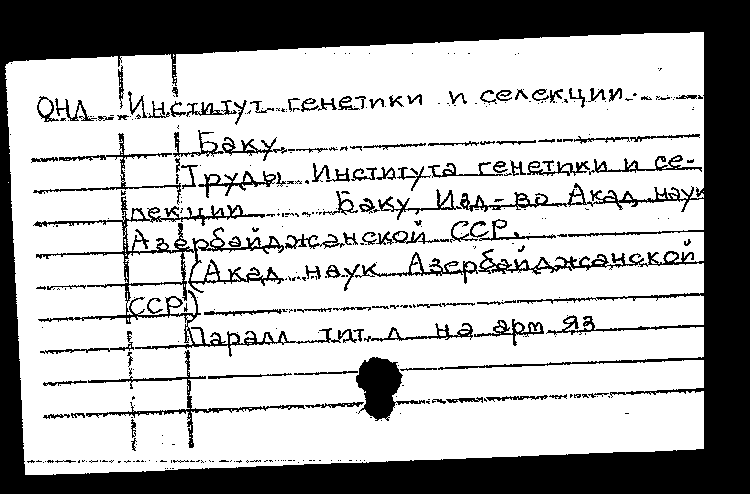 ОНЛ Институт генетики и селекции.
Баку.
Труды Института генетики и се-
лекции Баку, Изд-во Акад наук
Азербайджанской ССР.
(Акад наук Азербайджанской
ССР)
Паралл тит. л на арм яз